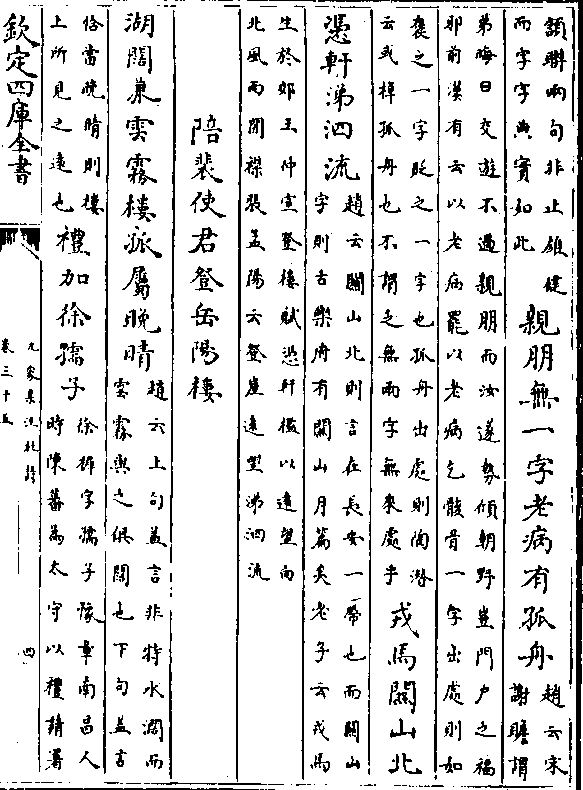 頷聯兩句非止雄健
而字字典實如此
親朋無一字老病有孤舟
趙云宋
謝瞻謂
弟晦曰交遊不過親朋而汝遂勢傾朝野豈門户之福
耶前漢有云以老病罷以老病乞骸骨一字出處則如
褒之一字貶之一字也孤舟出處則陶潛
云或棹孤舟也不謂之無兩字無來處乎
戎馬關山北
憑軒涕泗流
趙云關山北則言在長安一帶也而關山
字則古樂府有關山月篇矣老子云戎馬
生於郊王仲宣登樓賦憑軒檻以遙望向
北風而開襟張孟陽云登崖遠望涕泗流
陪裴使君登岳陽樓
湖闊兼雲霧樓孤屬晚晴
趙云上句蓋言非特水濶而
雲霧與之俱闊也下句蓋言
恰當晚晴則樓
上所見之遠也
禮加徐孺子
徐穉字孺子豫章南昌人
時陳蕃為太守以禮請署
欽定四庫全書
九家集注杜詩
卷三十五
四